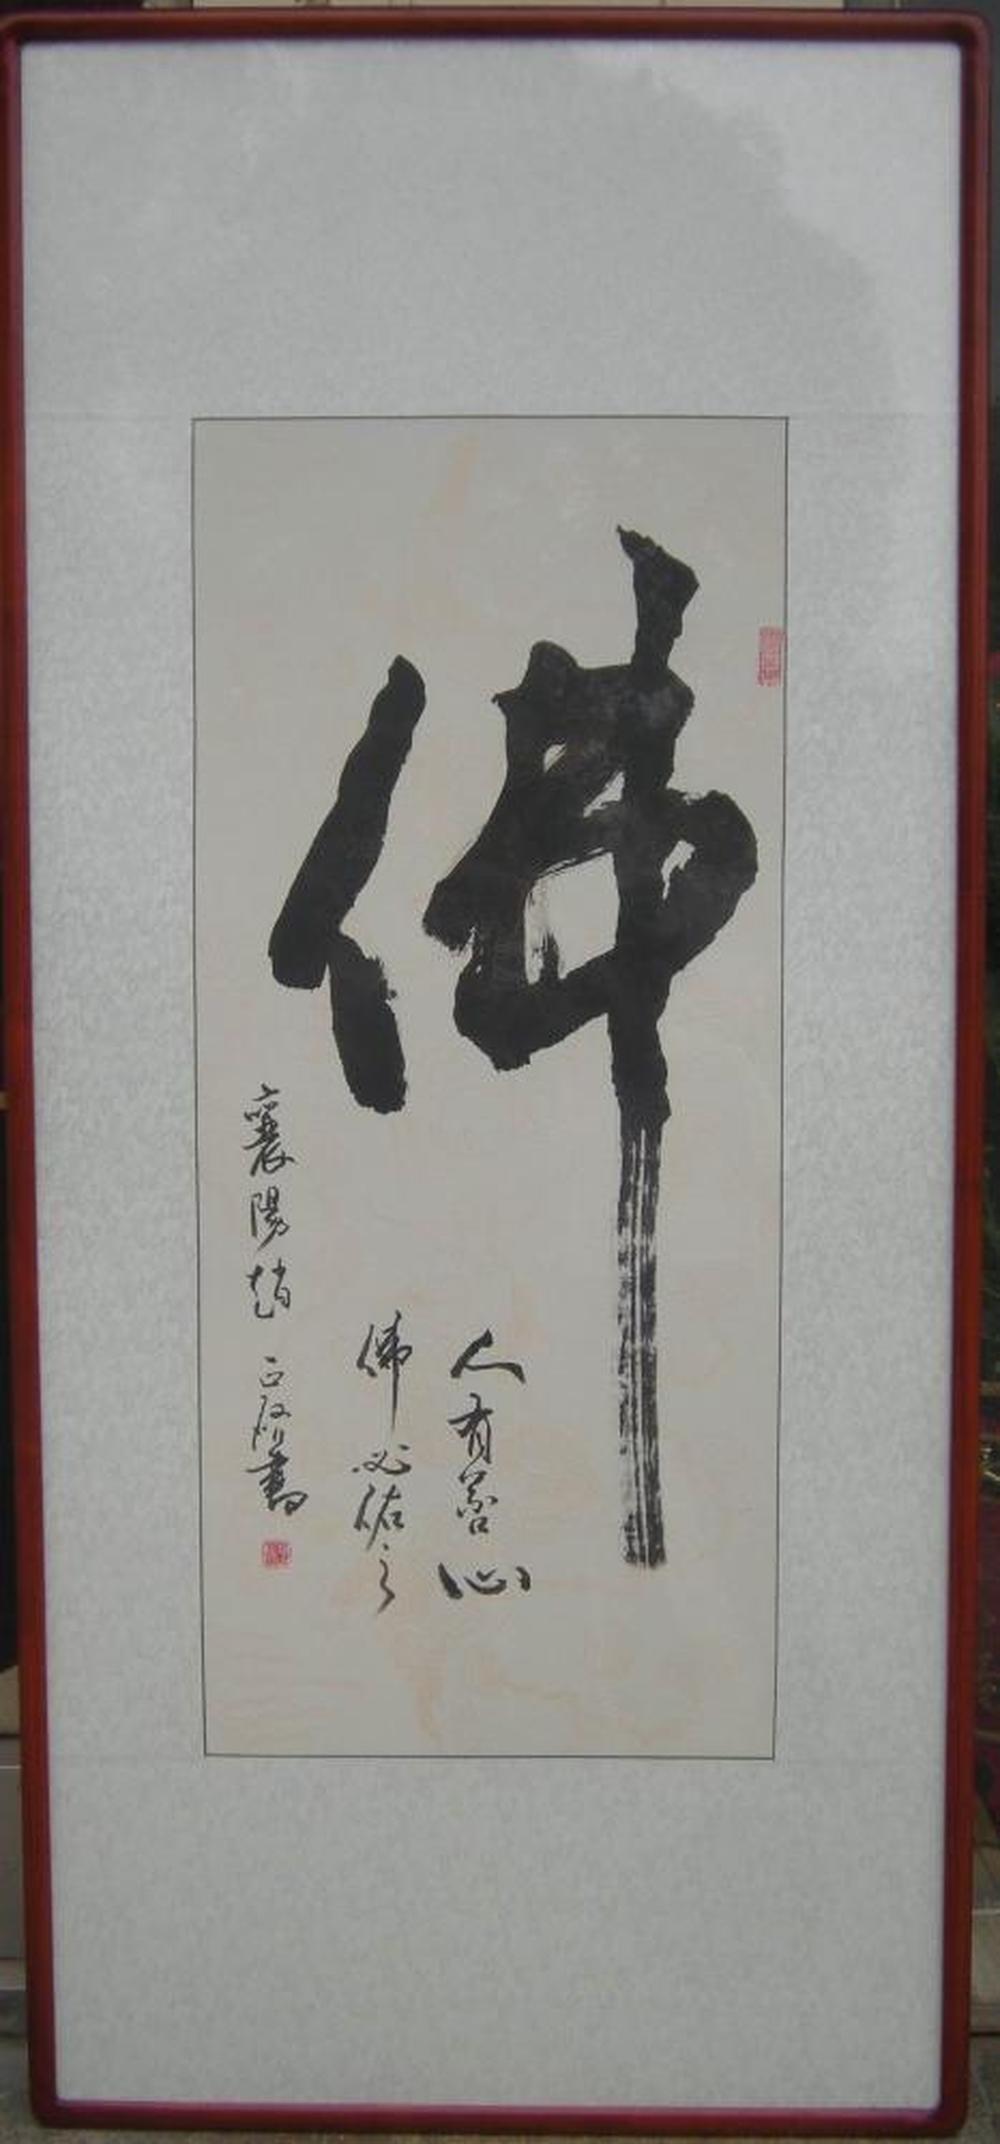 佛
人有善心
佛必佑之
襄陽趙正啟書